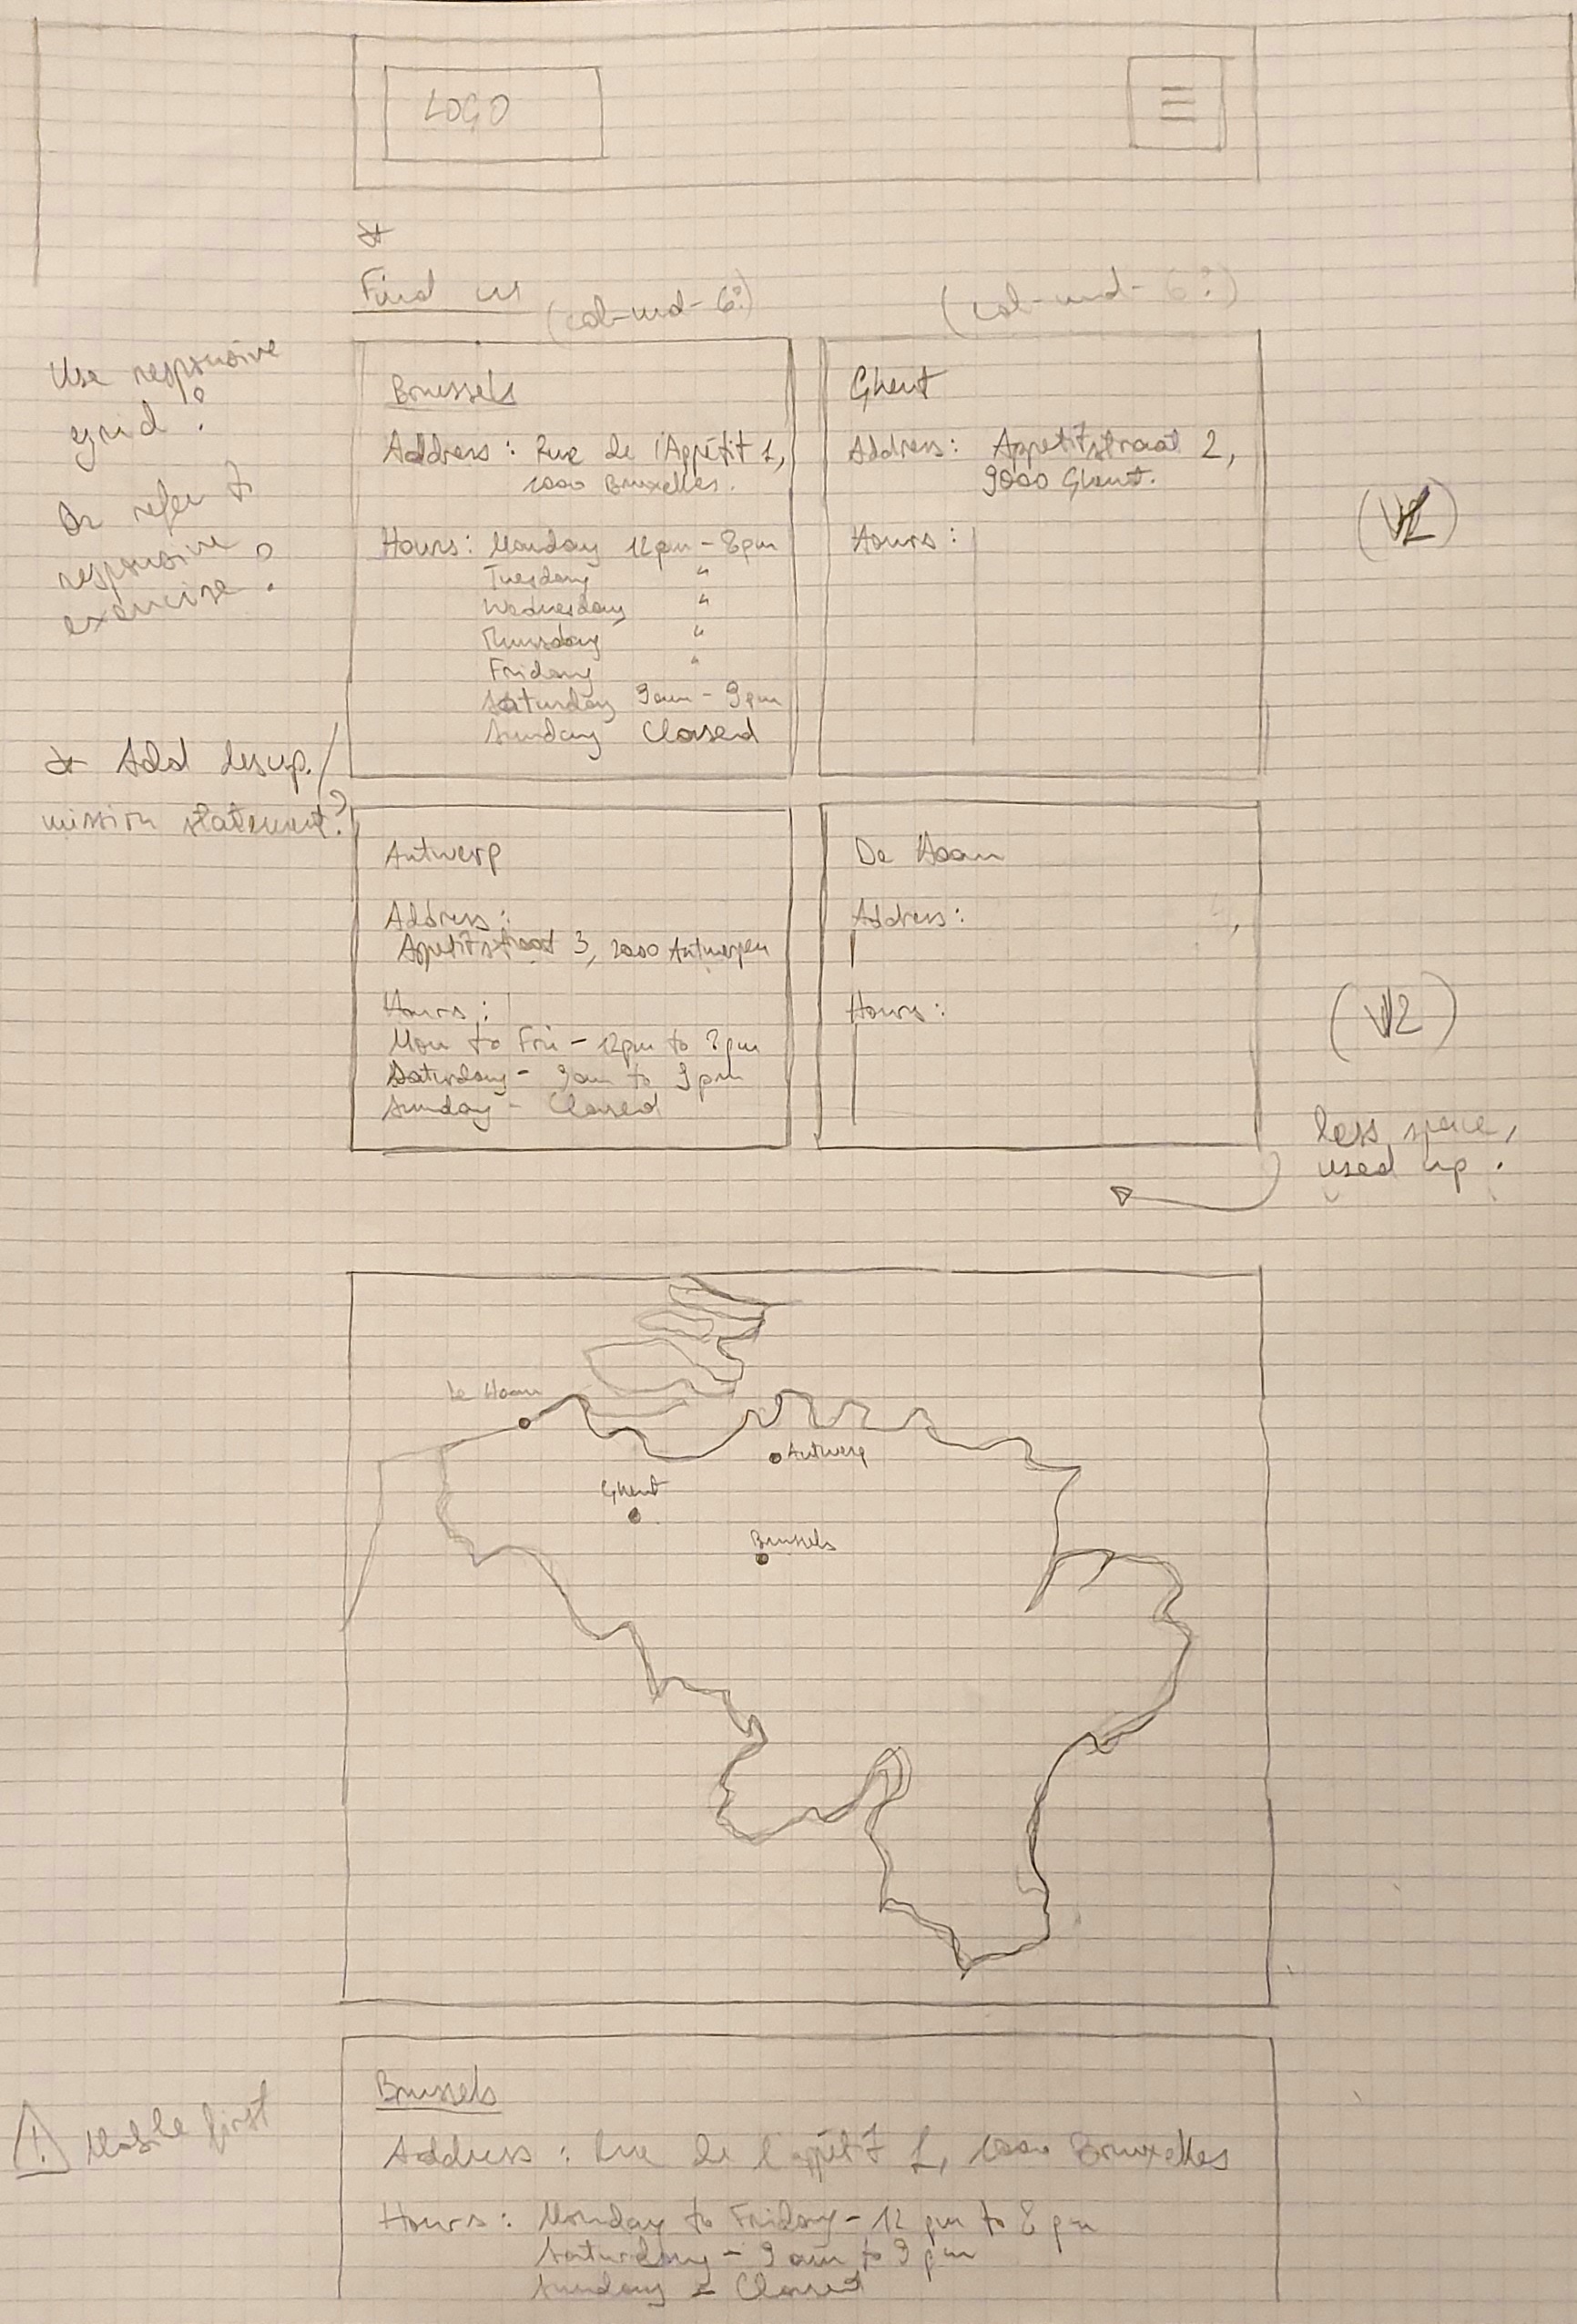 LOGO
*
Find us
(col-md-6?)
(col-md-6?)
Use responsive
grid?
Or refer to
responsive
exercise?
Brussels
Address: Rue de l'Appétit 1,
1000 Bruxelles.
Hours: Monday 12pm - 8pm
Tuesday "
Wednesday "
Thursday "
Friday "
Saturday 9am - 9pm
Sunday Closed
Ghent
Address: Appetitstraat 2,
9000 Ghent.
Hours:
(V1)
* Add descrip./
mission statement?
Antwerp
Address:
Appetitstraat 3, 2000 Antwerpen
Hours:
Mon to Fri - 12pm to 8pm
Saturday - 9am to 9pm
Sunday - Closed
De Haan
Address:
Hours:
(V2)
less space,
used up.
De Haan
Antwerp
Ghent
Brussels
! Mobile first
Brussels
Address: Rue de l'appétit 1, 1000 Bruxelles
Hours: Monday to Friday - 12 pm to 8 pm
Saturday - 9 am to 9 pm
Sunday - Closed